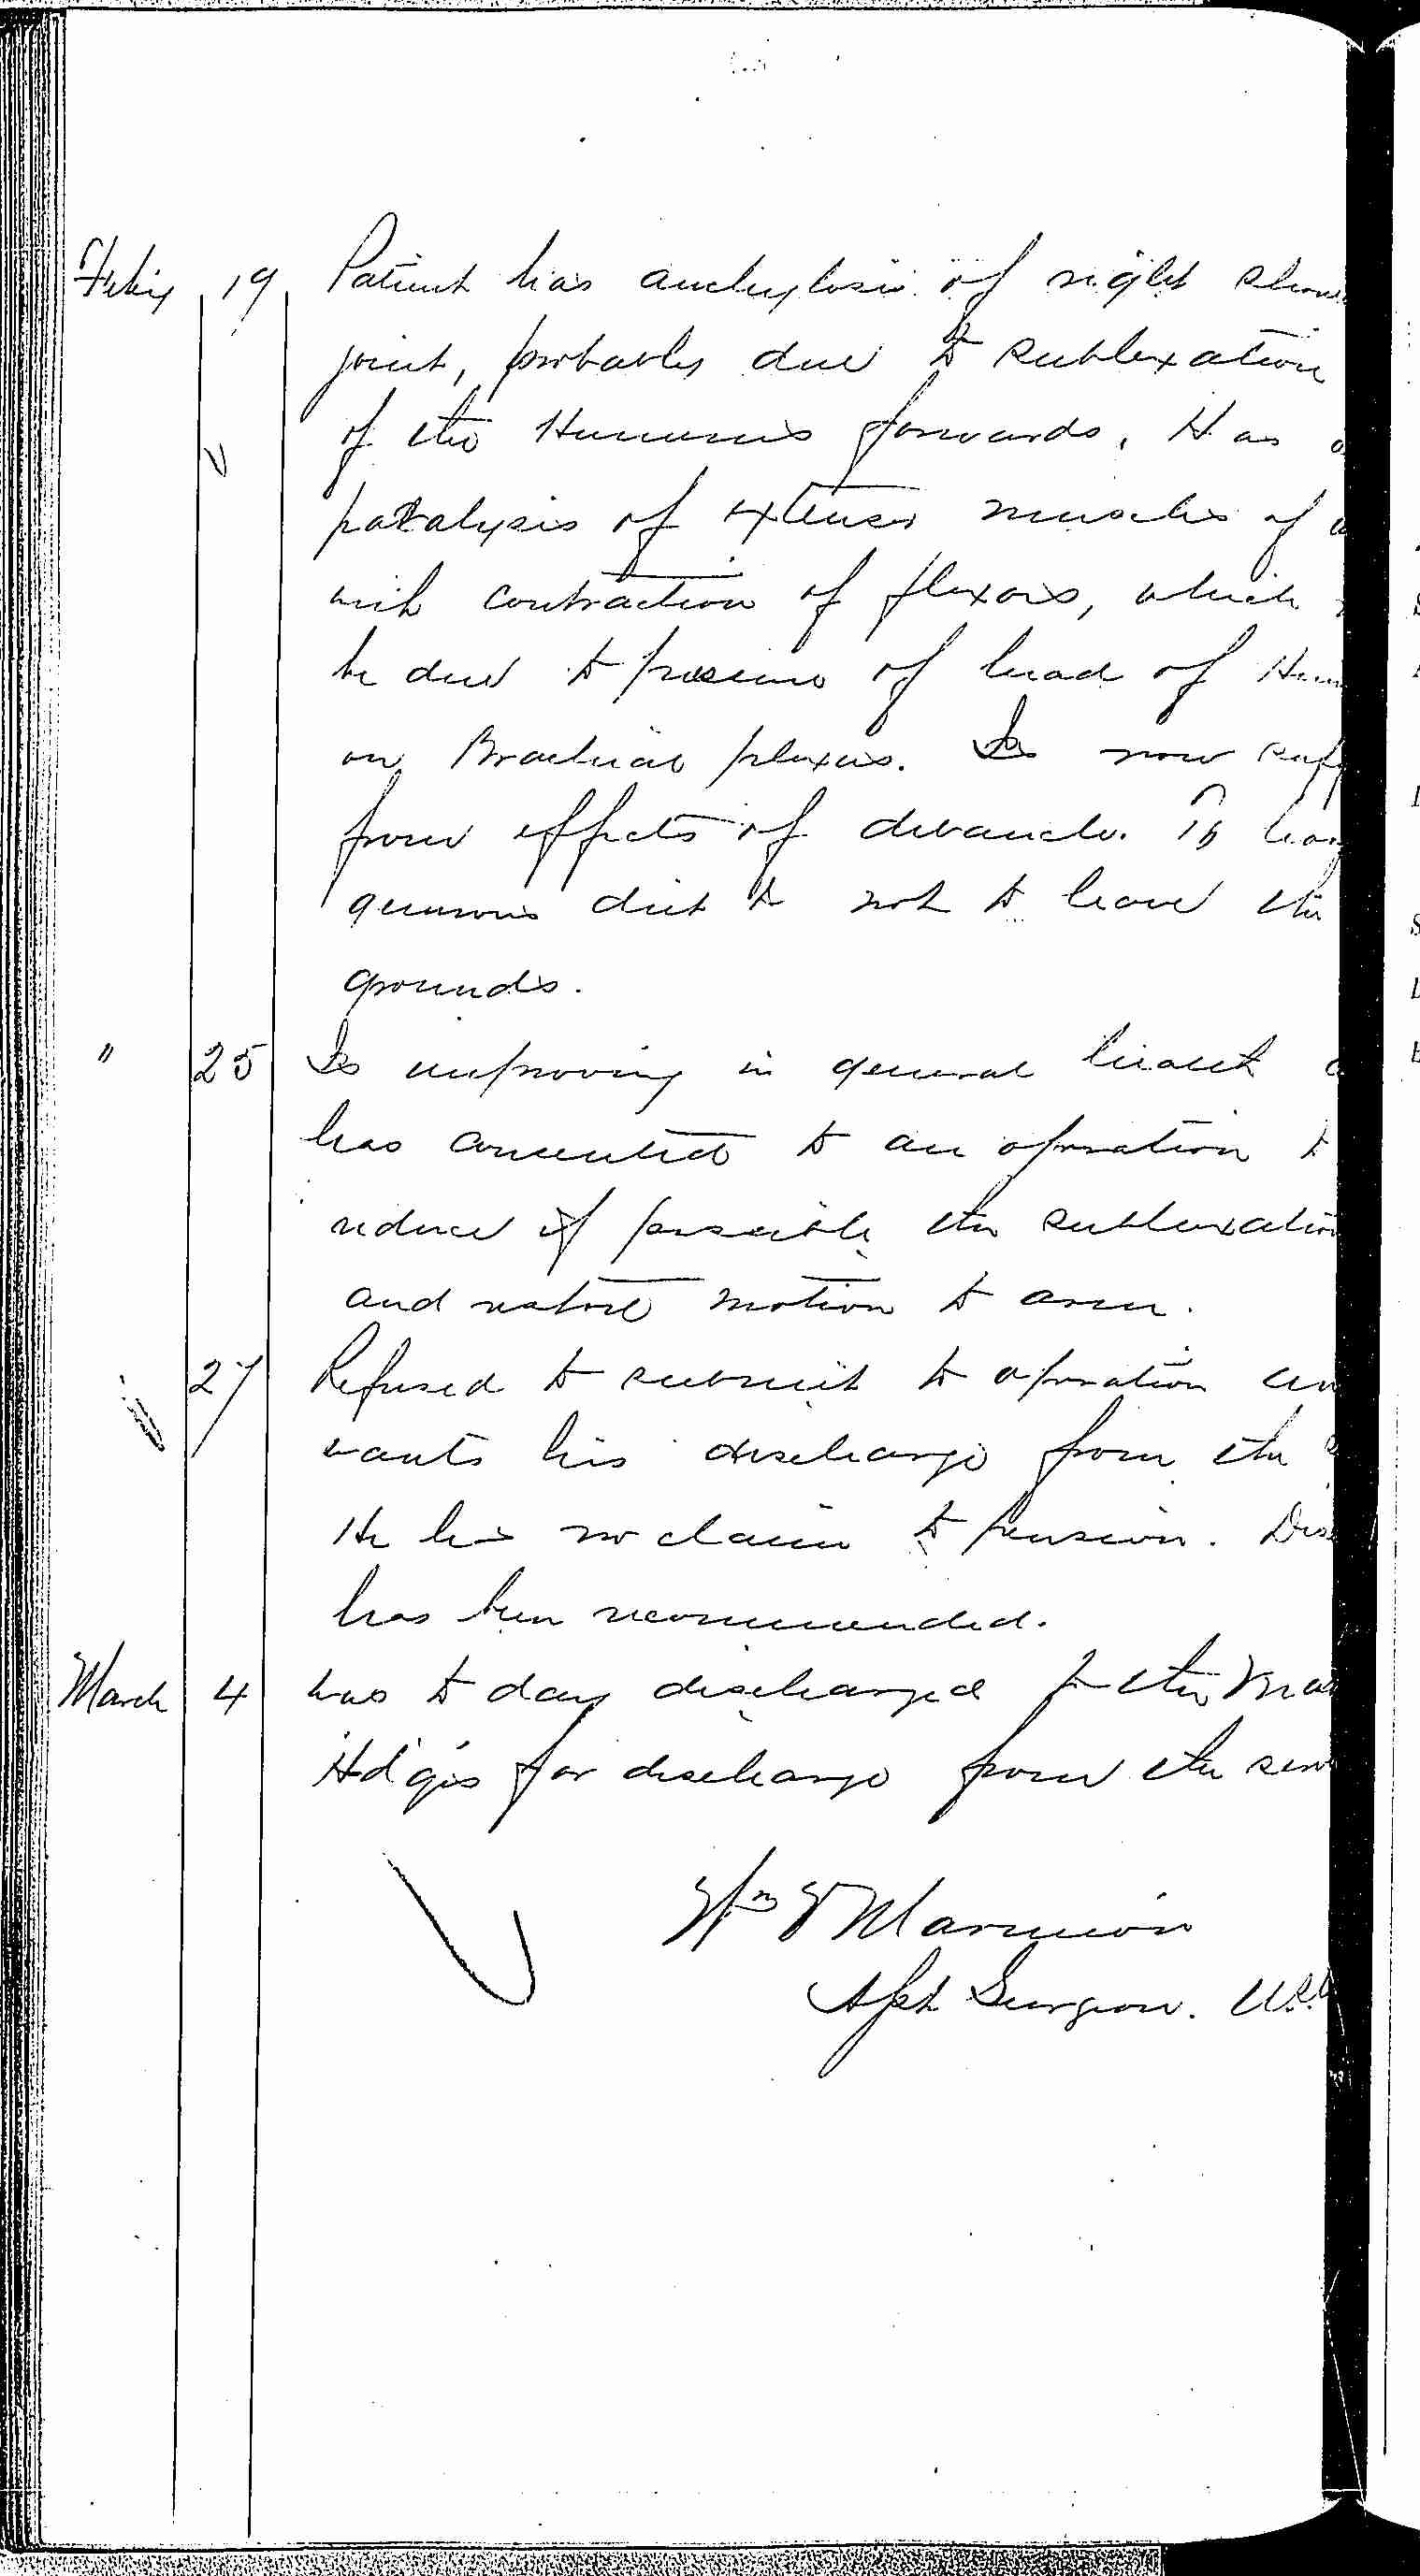 Feby 19 Patient has anchylosis of right shou
joint, probably due to subluxation
of the Humerus forwards. Has
paralysis of extensor muscles of
with contraction of flexors, which
be due to pressure of head of Hum
on Brachial plexus. Is now suff
from effects of debauch. To hav
generous diet & not to leave the
grounds.
" 25 Is improving in general health
has consented to an operation to
reduce if possible the subluxation
and restore motion to arm.
27 Refused to submit to operation an
wants his discharge from the
He has no claim to pension. Dis
has been recommended.
March 4 was to day discharged to the Mar
Hdqrs for discharge from the serv
Wm Marmion
Asst Surgeon. U.S.